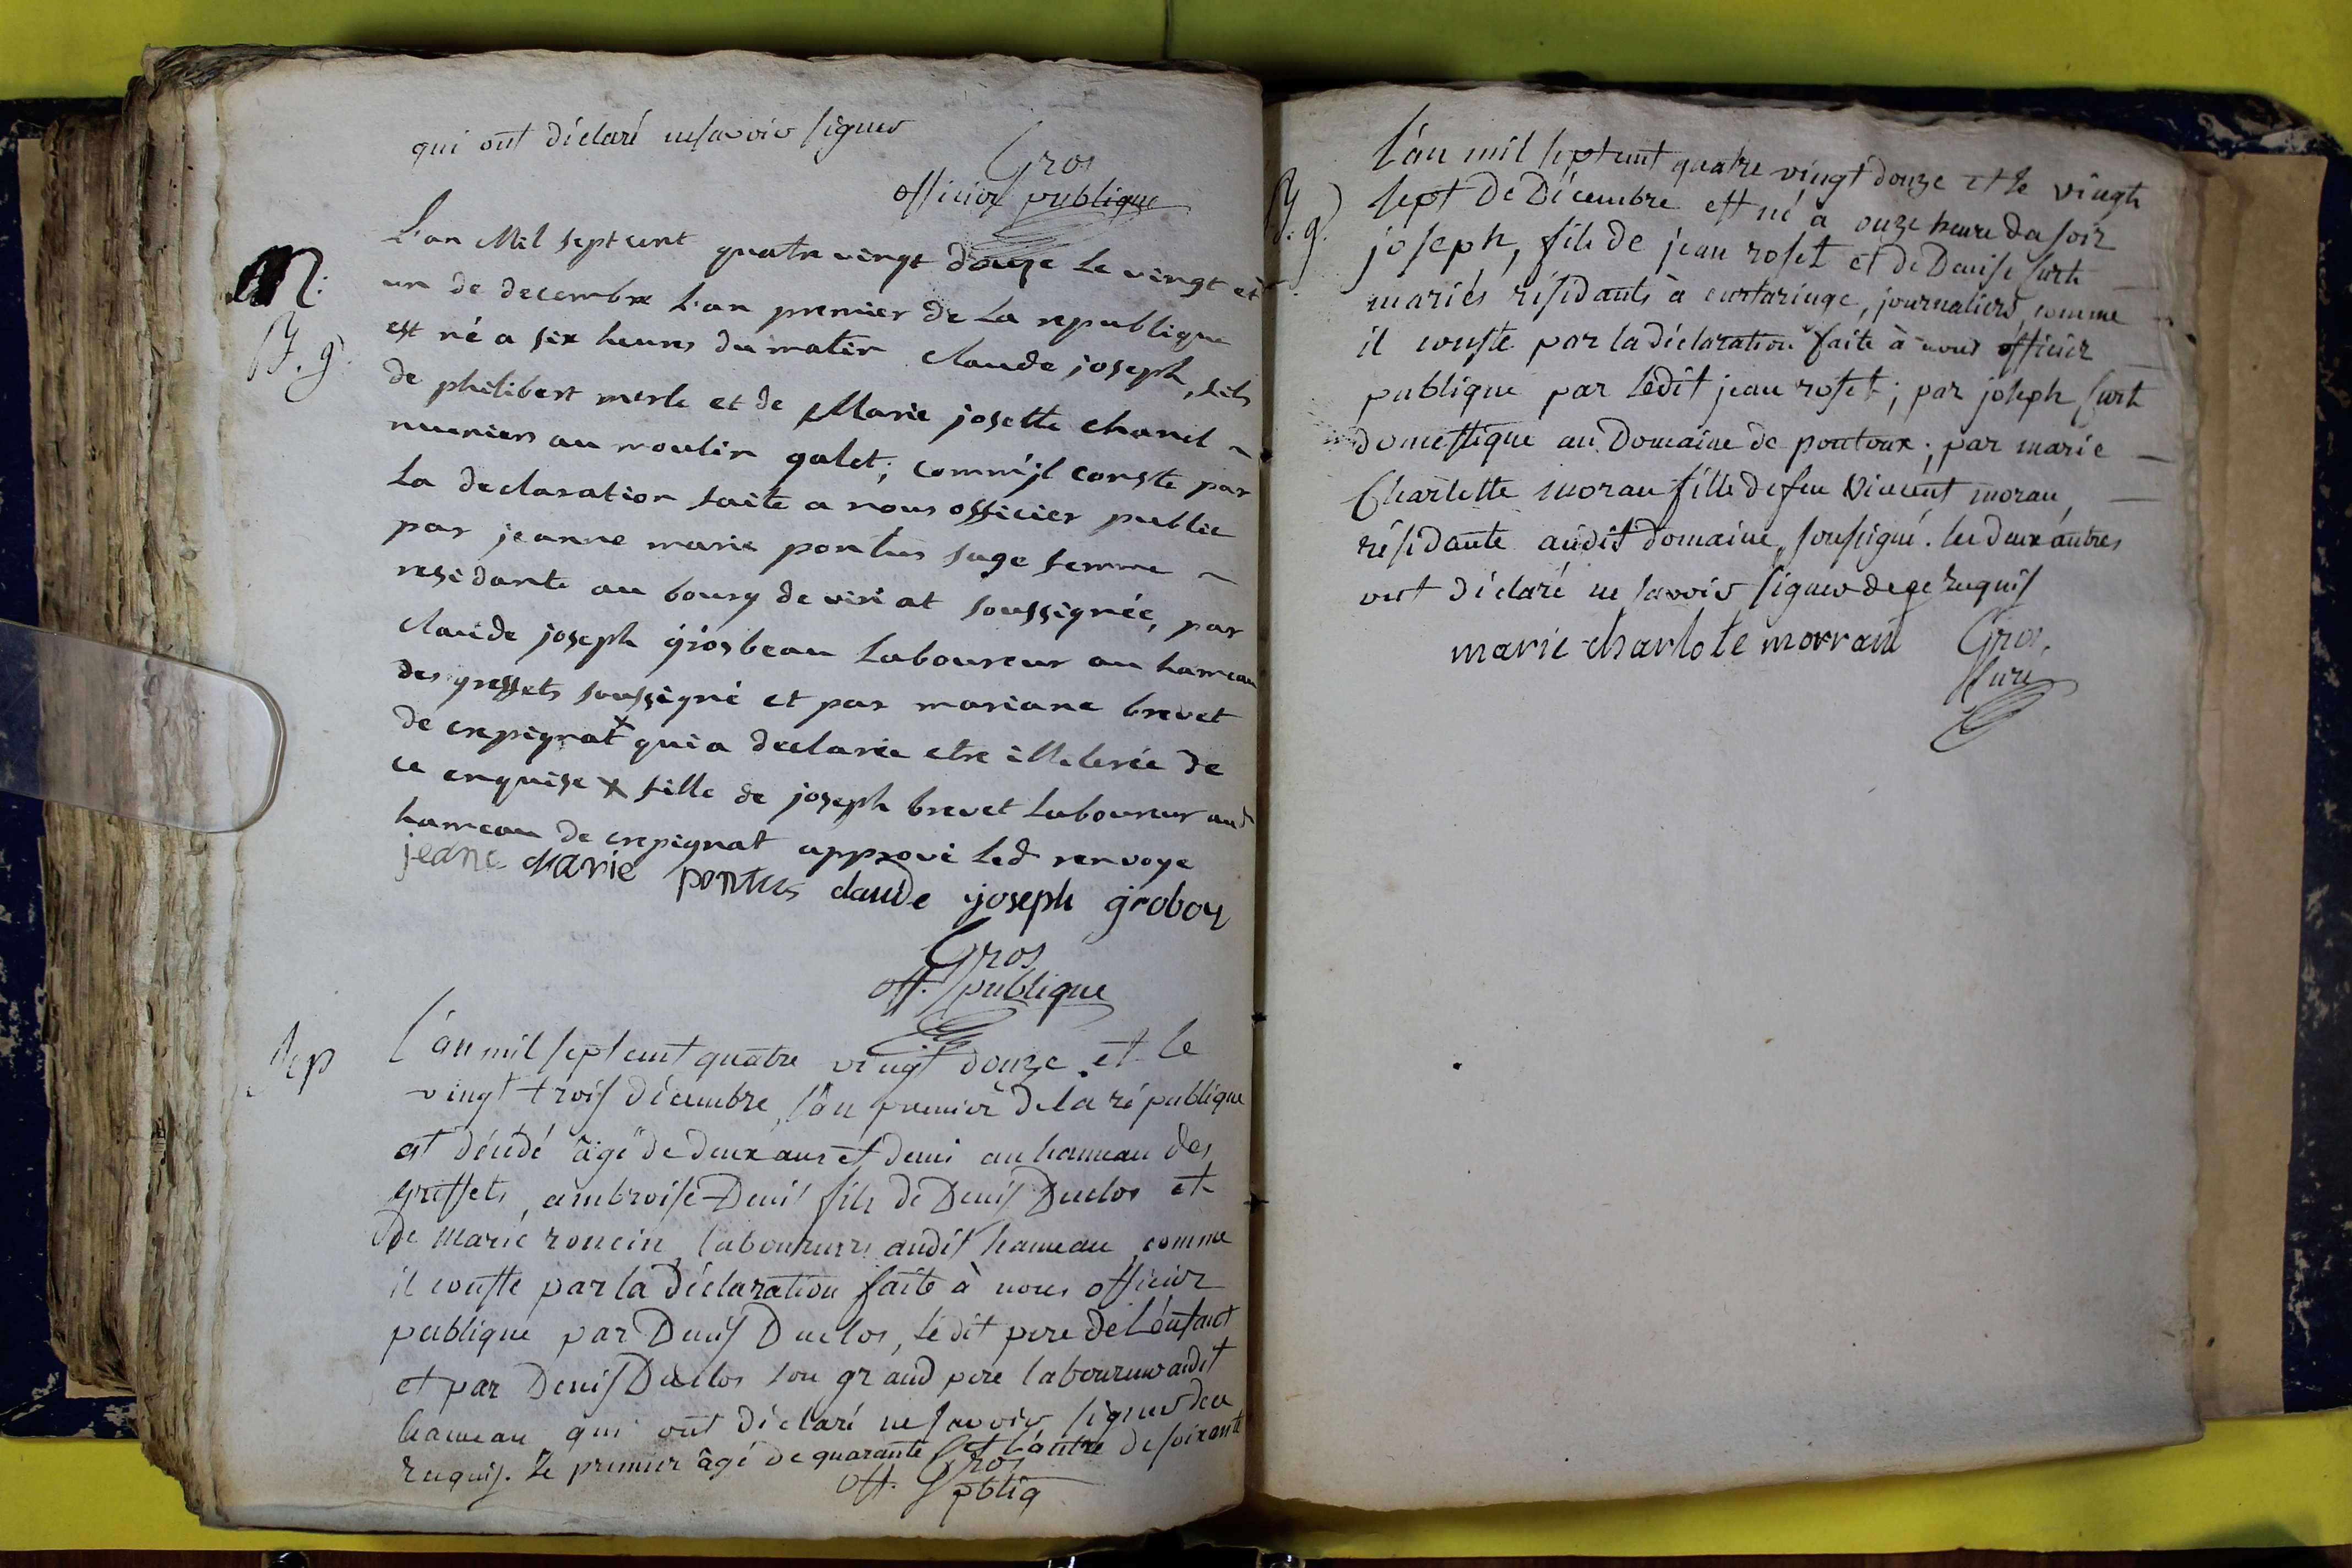 qui ont déclaré ne savoir signer
Gros
officier publique
L'an Mil sept cent quatre vingt douze Le vingt et
un de decembre L'an premier de La republique
est né a six heures du matin Claude joseph, fils
de philibert merle et de Marie josette chanel
muniers au moulin galet; comm'jl conste par
La declaration faite a nous officier public
par jeanne marie pontus sage femme
residante au bourg de viriat soussignée, par
Claude joseph grosbeau Laboureur au hameau
des greffets soussigné et par mariane brevet
de crepignat x qui a declarée etre illeterée de
ce enquise x fille de joseph brevet Laboureur aud
hameau de crepignat apprové Led renvoye
jeane Marie pontus claude joseph groboz
Gros
off. publique
L'an mil sept cent quatre vingt douze et le
vingt trois décembre, l'an premier de la république
est décédé âgé de deux ans et demi au hameau des
greffets, ambroise Denis fils de Denis Duclos et
de Marie roncin laboureurs audit hameau comme
il conste par la déclaration faite à nous officier
publique par Denis Duclos, ledit pere de L'enfant
et par Denis Duclos son grand pere laboureur audit
hameau qui ont déclaré ne savoir signer de ce
requis. Le premier âgé de quarante et l'autre de soixante
Gros
off. pbliq
N.
B. g.
dep
L'an mil sept cent quatre vingt douze et le vingt
sept De Décembre est né à onze heure du soir
joseph, fils de jean roset et de Denise curt
mariés résidants à curtaringe, journaliers, comme
il conste par la déclaration faite à nous officier
publique par ledit jean roset; par joseph Curt
domestique au Domaine de pontoux; par marie
Charlette moran fille de feu Vincent moran,
résidante audit domaine, soussigné. les deux autres
ont déclaré ne savoir signer de ce requis
marie charlote morrain Gros,
Curé
B. g.